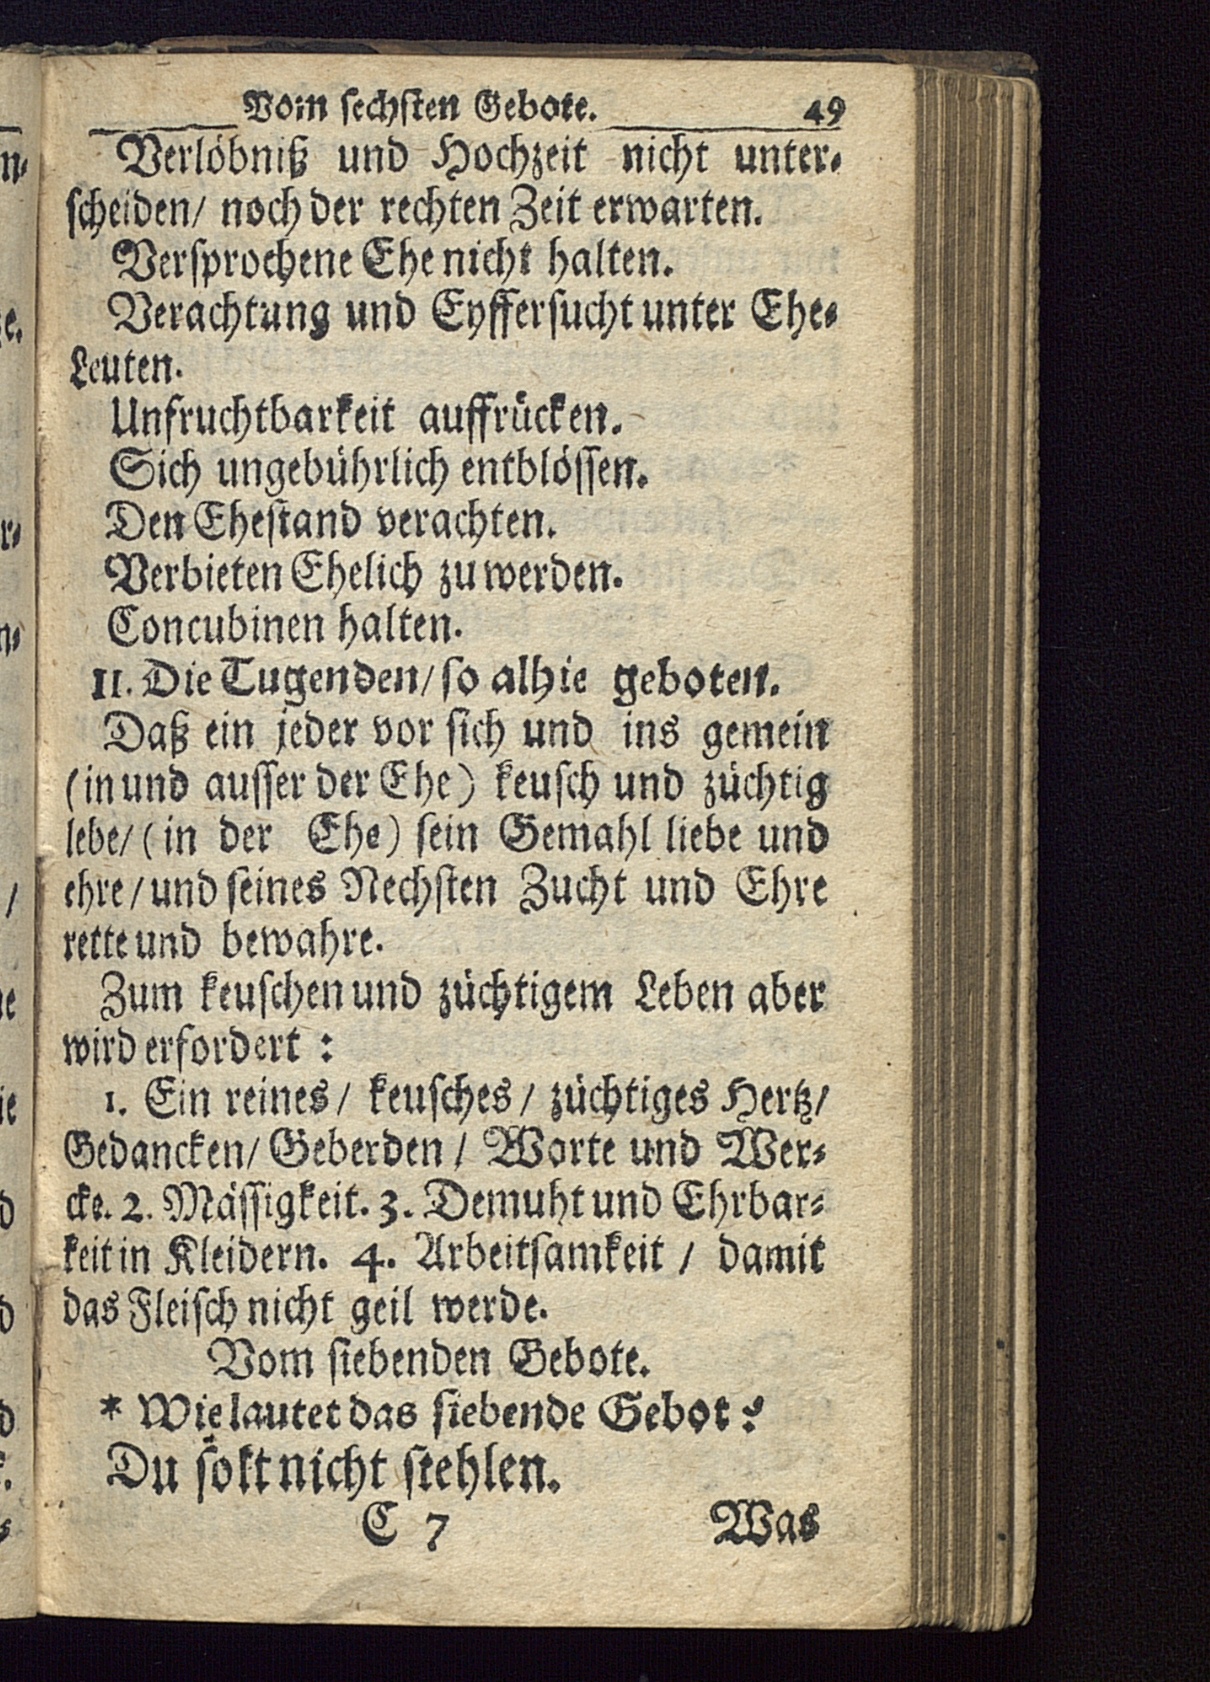 Vom sechsten Gebote. 49
Verlöbniß und Hochzeit nicht unter-
scheiden/ noch der rechten Zeit erwarten.
Versprochene Ehe nicht halten.
Verachtung und Eyffersucht unter Ehe-
Leuten.
Unfruchtbarkeit auffrücken.
Sich ungebührlich entblössen.
Den Ehestand verachten.
Verbieten Ehelich zu werden.
Concubinen halten.
II. Die Tugenden/ so alhie geboten.
Daß ein jeder vor sich und ins gemein
(in und ausser der Ehe) keusch und züchtig
lebe/ (in der Ehe) sein Gemahl liebe und
ehre/ und seines Nechsten Zucht und Ehre
rette und bewahre.
Zum keuschen und züchtigem Leben aber
wird erfordert:
1. Ein reines/ keusches/ züchtiges Hertz/
Gedancken/ Geberden/ Worte und Wer-
cke. 2. Mässigkeit. 3. Demuht und Ehrbar-
keit in Kleidern. 4. Arbeitsamkeit/ damit
das Fleisch nicht geil werde.
Vom siebenden Gebote.
* Wie lautet das siebende Gebot?
Du solt nicht stehlen.
C 7 Was